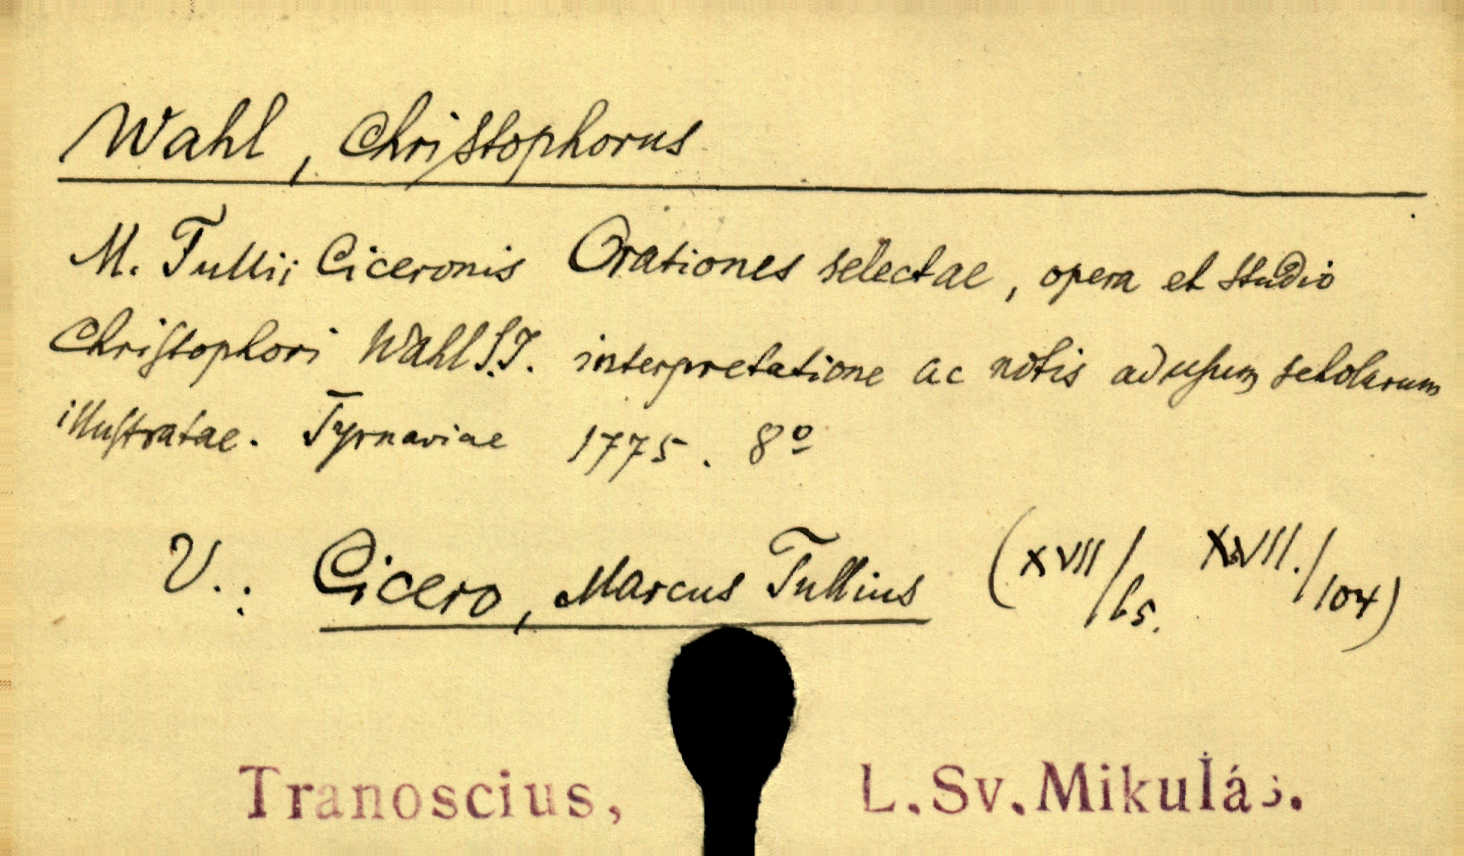 Wahl, Christophorus
M. Tullii Ciceronis Orationes selectae, opera et studio
Christophori Wahl S.J. interpretatione ac notis ad usum scholarum
illustratae. Tyrnaviae 1775. 8º
V.: Cicero, Marcus Tullius (XVII/65. XVIII./104)
Tranoscius, L. Sv. Mikuláš.